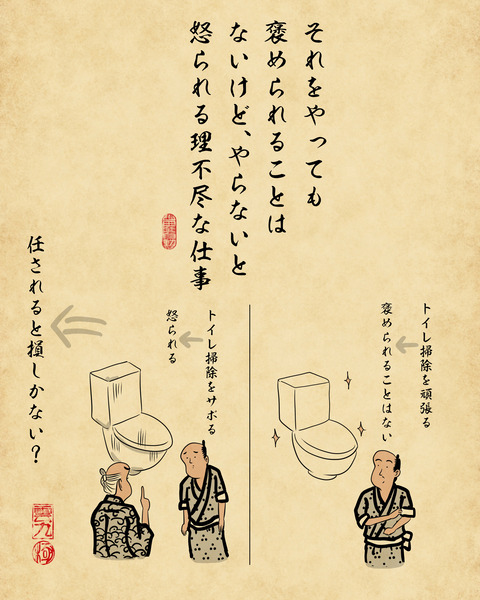 それをやっても
褒められることは
ないけど、やらないと
怒られる理不尽な仕事
トイレ掃除を頑張る
褒められることはない
トイレ掃除をサボる
怒られる
任されると損しかない?